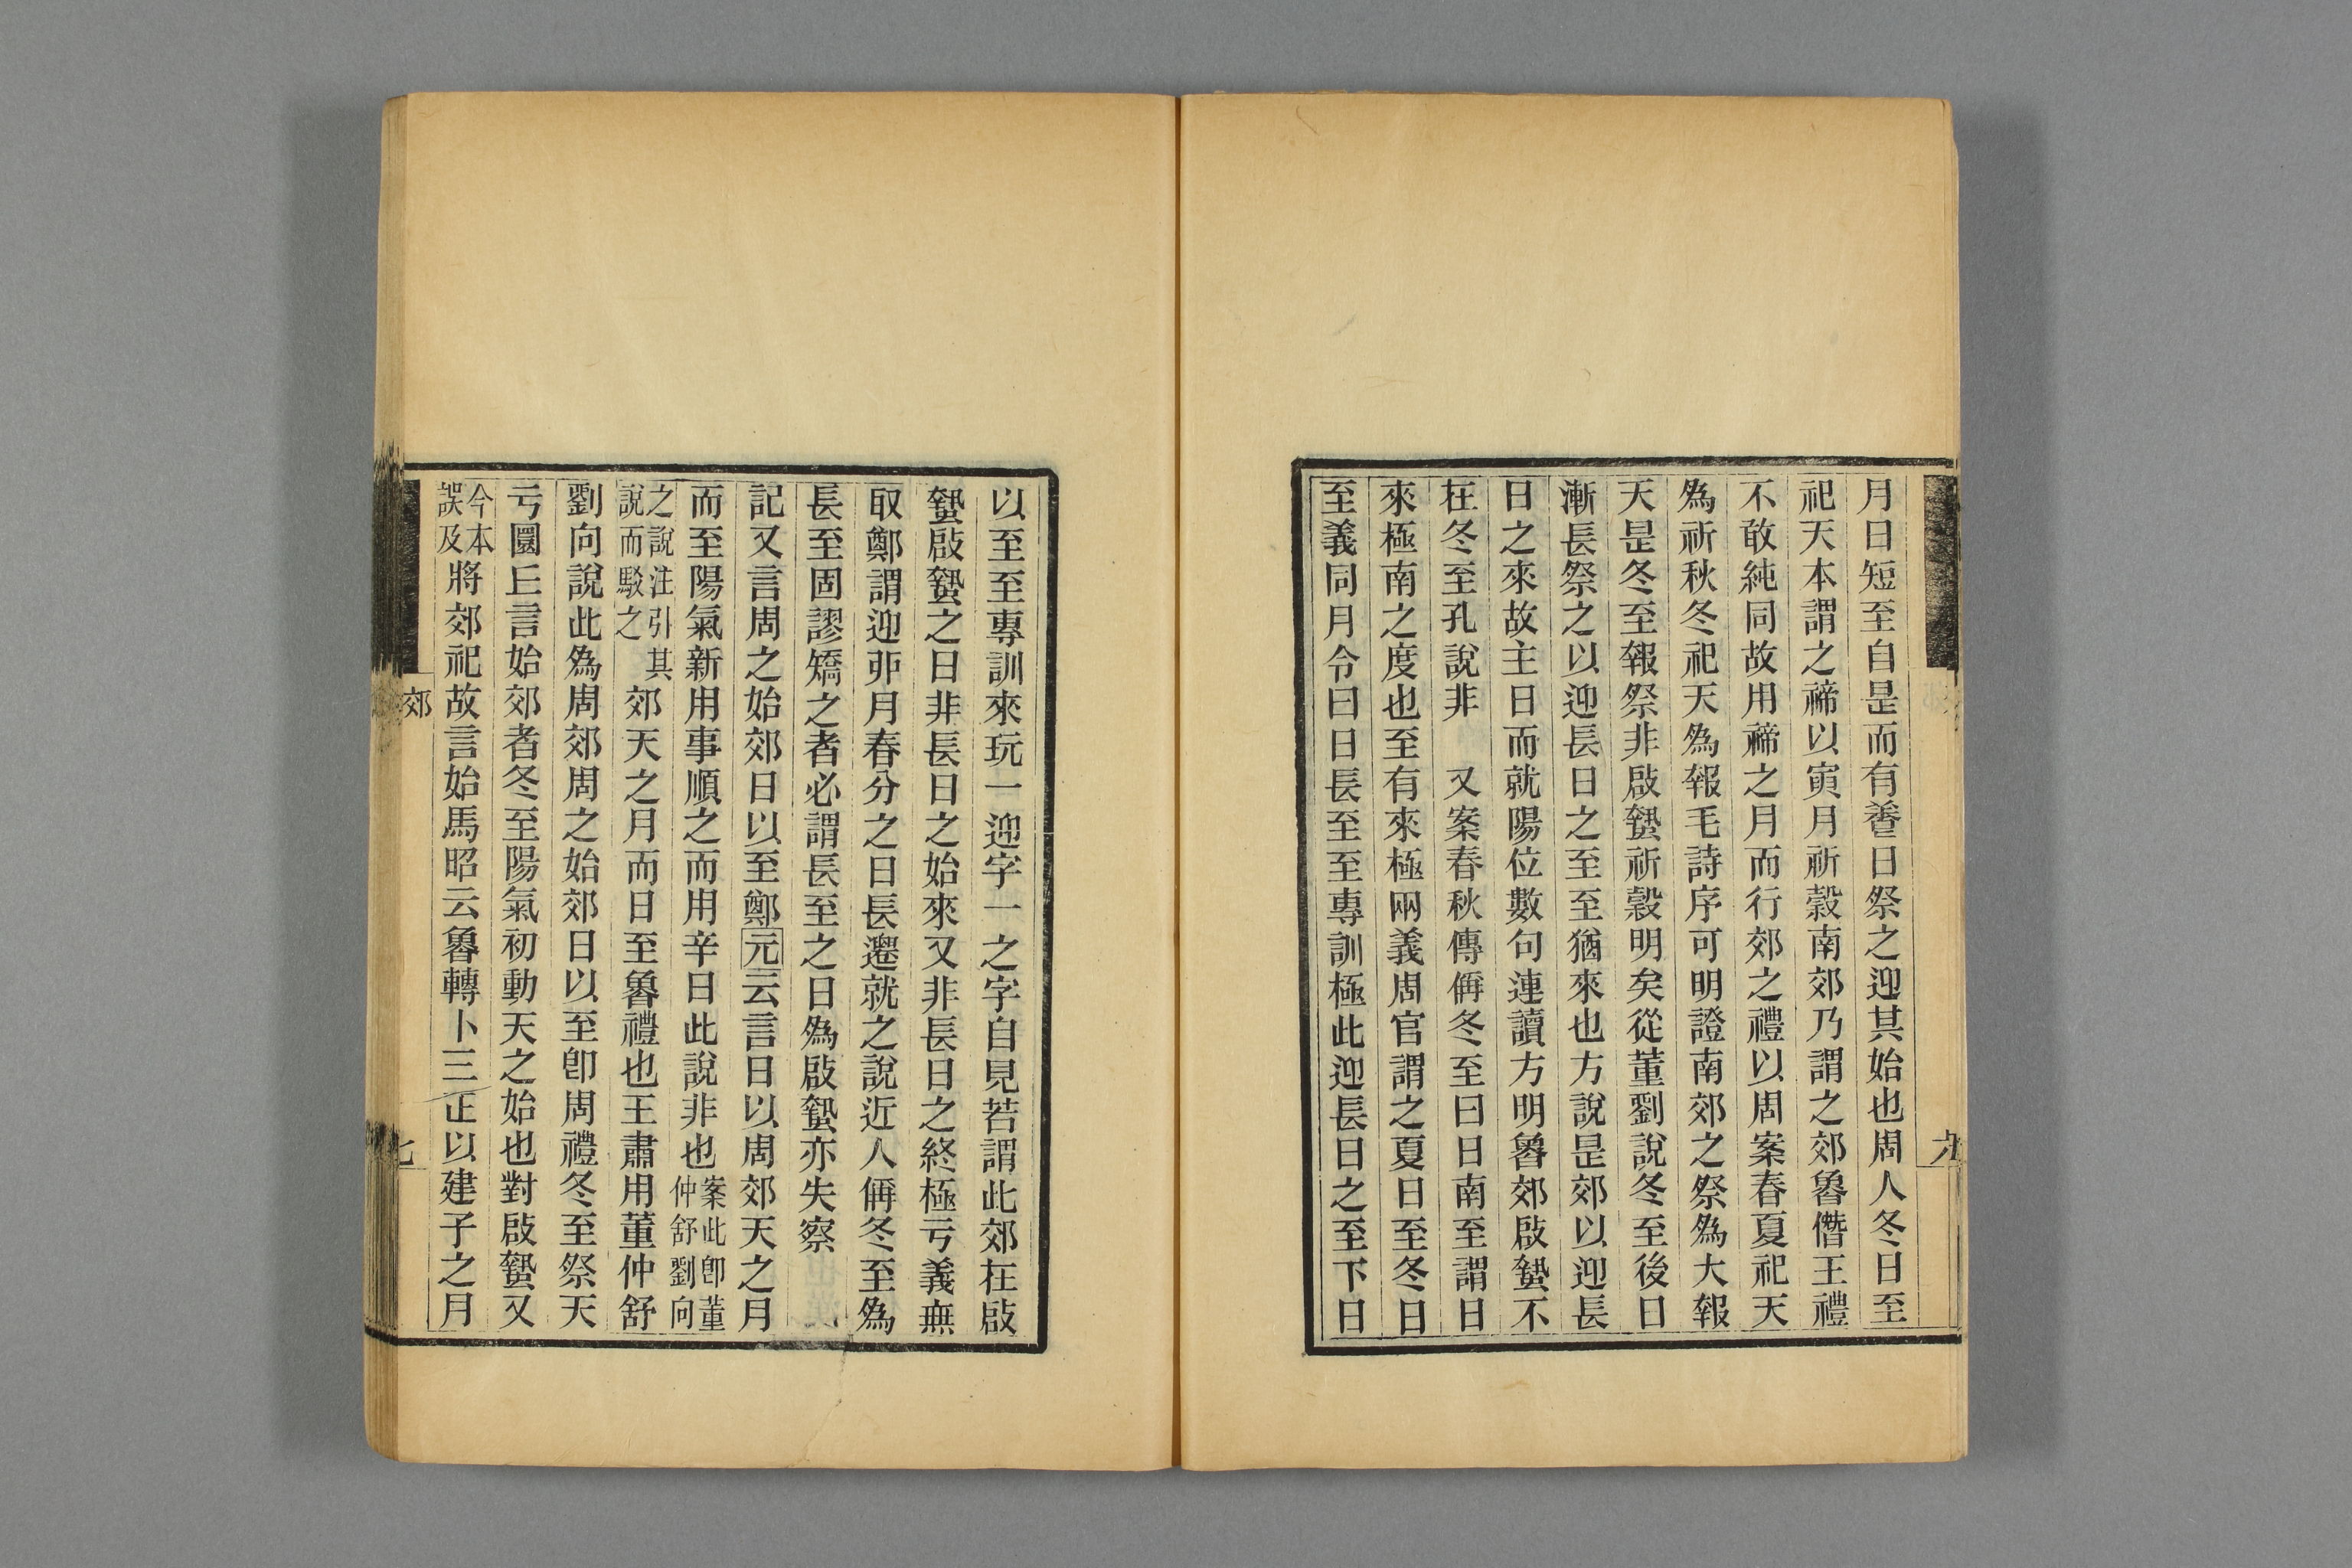 月日短至自是而有養日祭之迎其始也周人冬日至
祀天本謂之禘以寅月祈穀南郊乃謂之郊魯僭王禮
不敢純同故用禘之月而行郊之禮以周案春夏祀天
為祈秋冬祀天為報毛詩序可明證南郊之祭為大報
天是冬至報祭非啟蟄祈穀明矣從董劉說冬至後日
漸長祭之以迎長日之至至猶來也方說是郊以迎長
日之來故主日而就陽位數句連讀方明魯郊啟蟄不
在冬至孔說非　又案春秋傳偁冬至曰日南至謂日
來極南之度也至有來極兩義周官謂之夏日至冬日
至義同月令曰日長至至專訓極此迎長日之至下日
六
以至至專訓來玩一迎字一之字自見若謂此郊在啟
蟄啟蟄之日非長日之始來又非長日之終極亏義無
取鄭謂迎丣月春分之日長遷就之說近人偁冬至為
長至固謬矯之者必謂長至之日為啟蟄亦失察
記又言周之始郊日以至鄭元云言日以周郊天之月
而至陽氣新用事順之而用辛日此說非也案此卽董仲舒劉向
之說注引其說而駁之郊天之月而日至魯禮也王肅用董仲舒
劉向說此為周郊周之始郊日以至卽周禮冬至祭天
亏圜丘言始郊者冬至陽氣初動天之始也對啟蟄又
今本誤及將郊祀故言始馬昭云魯轉卜三正以建子之月
郊
七